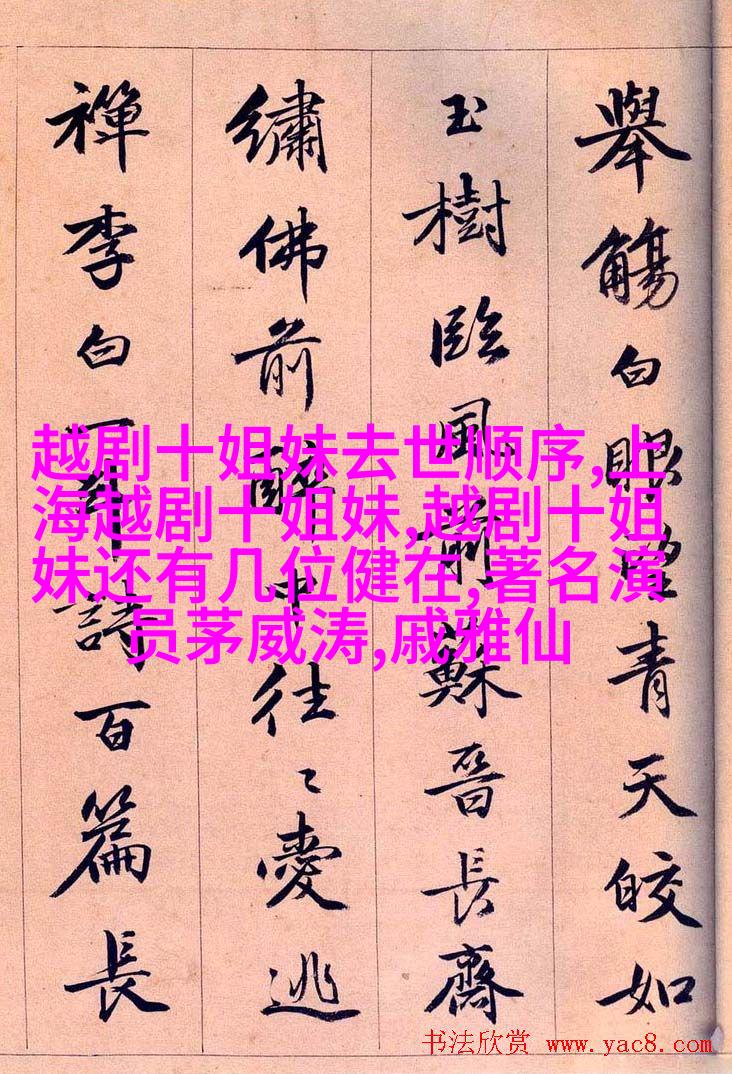 舉觴白眼望青天皎如
玉樹臨風前蘇晉長齋
繡佛前醉中往〻愛逃
禪李白一斗詩百篇長
越剧十姐妹去世顺序,上
海越剧十姐妹,越剧十姐
妹还有几位健在,著名演
员茅威涛,戚雅仙
书法欣赏 www.yac8.com